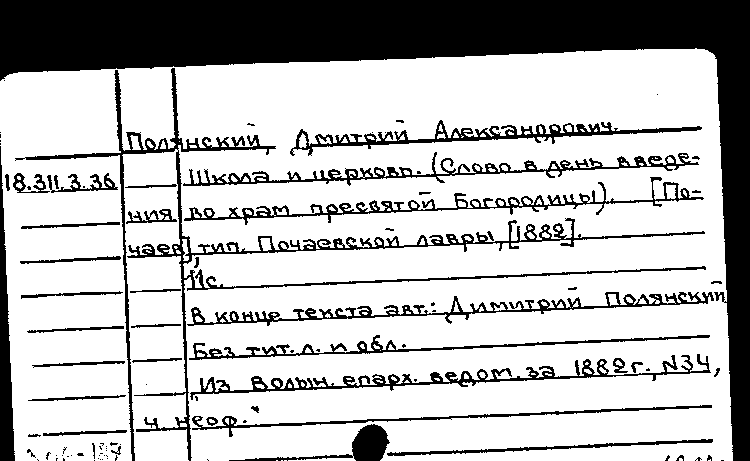 Полянский, Дмитрий Александрович.
18.311.3.36 Школа и церковь. (Слово в день введе-
ния во храм пресвятой Богородицы). [По-
чаев], тип. Почаевской лавры, [1882].
11с.
В конце текста авт.: Димитрий Полянский
Без тит. л. и обл.
"Из Волын. епарх. ведом. за 1882 г., N34,
ч. неоф."